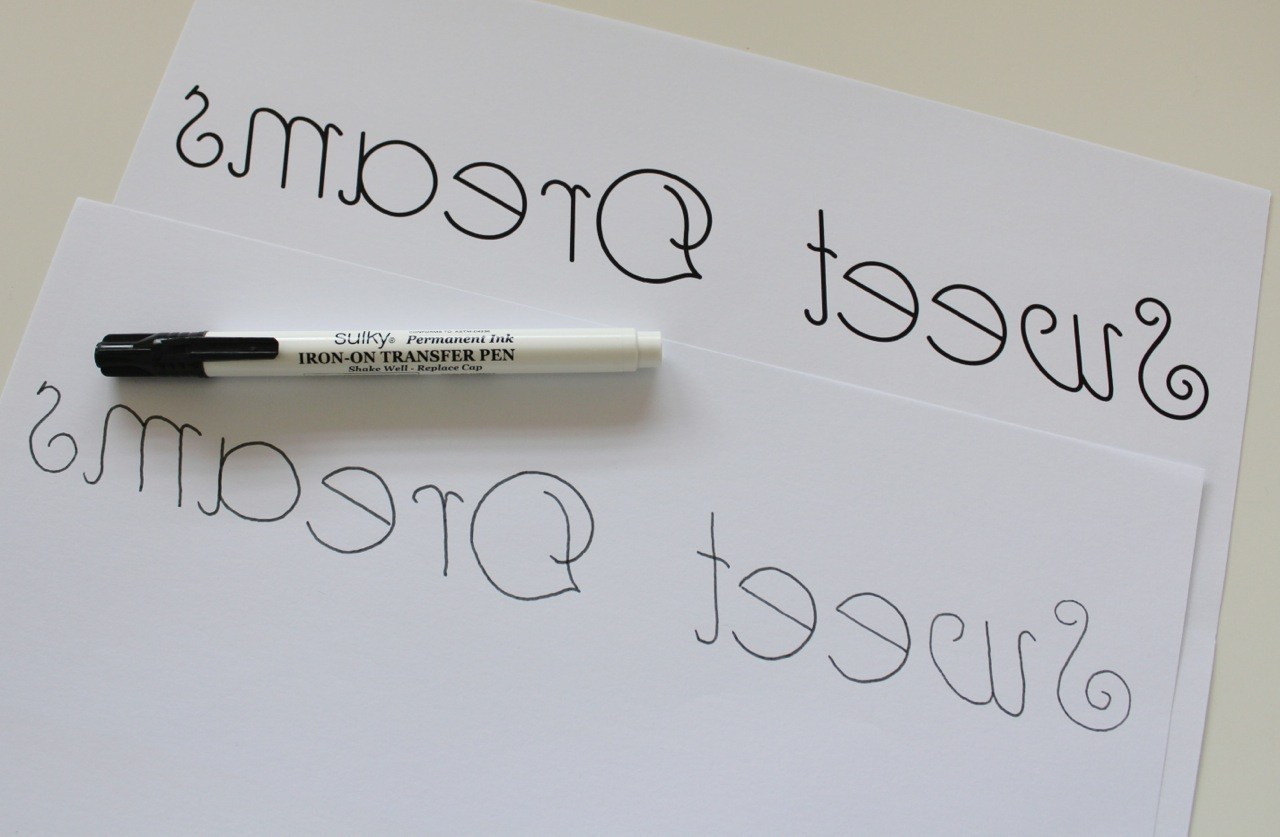 Sweet Dreams
sulky® Permanent Ink
IRON-ON TRANSFER PEN
Shake Well - Replace Cap
Sweet Dreams